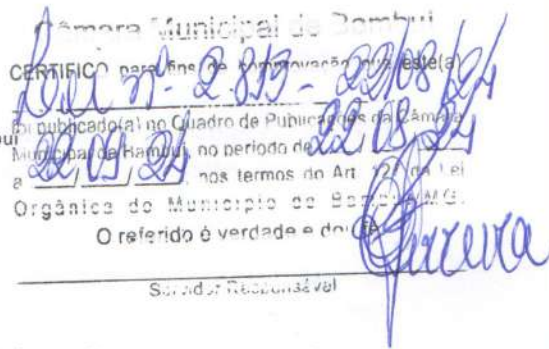 Câmara Municipal de Bambuí
CERTIFICO para fins de comprovação que este(a)
Lei nº 2.819 - 22/08/24
foi publicado(a) no Quadro de Publicações da Câmara
Municipal de Bambuí, no período de 22/08/24
a 22/09/24 nos termos do Art. 127 da Lei
Orgânica do Município de Bambuí/MG.
O referido é verdade e dou fé.
Servidor Responsável